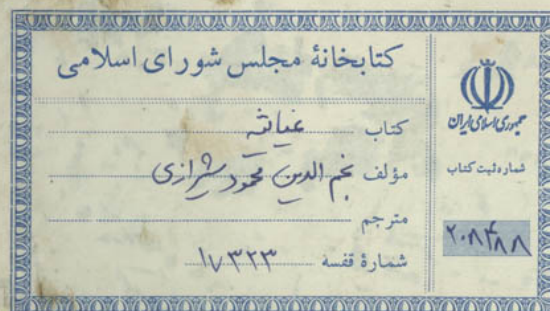 کتابخانهٔ مجلس شورای اسلامی
کتاب غیاثیه
مؤلف نجم الدین محمود شیرازی
مترجم
شمارهٔ قفسه ۱۷۳۲۳
جمهوری اسلامی ایران
شماره ثبت کتاب
۲۰۸۴۸۸